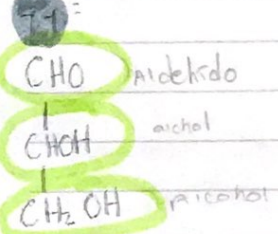 CHO Aldehido
CHOH alchol
CH₂ OH Alcohol